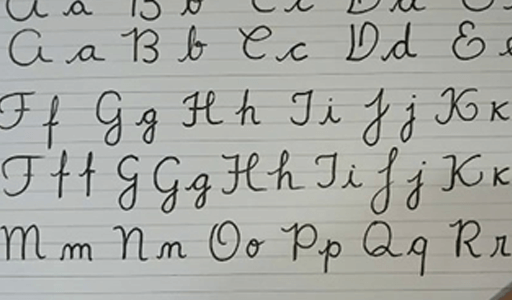 a a B b C c D d
A a B b C c D d E e
F f G g H h I i J j K k
F f f G G g H h I i J j K k
M m N n O o P p Q q R r